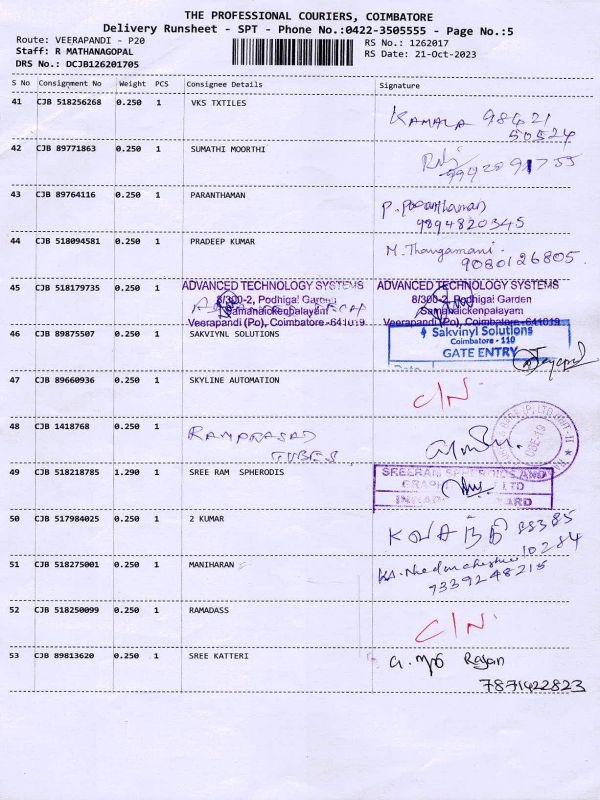 THE PROFESSIONAL COURIERS, COIMBATORE
Delivery Runsheet - SPT - Phone No.:0422-3505555 - Page No.:5
Route: VEERAPANDI - P20
RS No.: 1262017
Staff: R MATHANAGOPAL
RS Date: 21-Oct-2023
DRS No.: DCJB126201705
S No Consignment No Weight PCS Consignee Details Signature
41 CJB 518256268 0.250 1 VKS TXTILES
KAMALA 98421
50524
42 CJB 89771863 0.250 1 SUMATHI MOORTHI
43 CJB 89764116 0.250 1 PARANTHAMAN
P. Paranthaman
9894820345
44 CJB 518094581 0.250 1 PRADEEP KUMAR
M. Thangamani.
9080126805.
45 CJB 518179735 0.250 1
ADVANCED TECHNOLOGY SYSTEMS
8/300-2, Podhigai Garden
Samanaickenpalayam
Veerapandi (Po), Coimbatore-641019
ADVANCED TECHNOLOGY SYSTEMS
8/300-2, Podhigai Garden
Samanaickenpalayam
Veerapandi (Po), Coimbatore-641019
46 CJB 89875507 0.250 1 SAKVIYNL SOLUTIONS
Sakvinyl Solutions
Coimbatore - 110
GATE ENTRY
47 CJB 89660936 0.250 1 SKYLINE AUTOMATION
C/N.
48 CJB 1418768 0.250 1 RAMPRASAD
TUBES
49 CJB 518218785 1.290 1 SREE RAM SPHERODIS
50 CJB 517984025 0.250 1 2 KUMAR
88385
10284
51 CJB 518275001 0.250 1 MANIHARAN
9339248215
52 CJB 518250099 0.250 1 RAMADASS
C/N.
53 CJB 89813620 0.250 1 SREE KATTERI
Rajan
7871422823